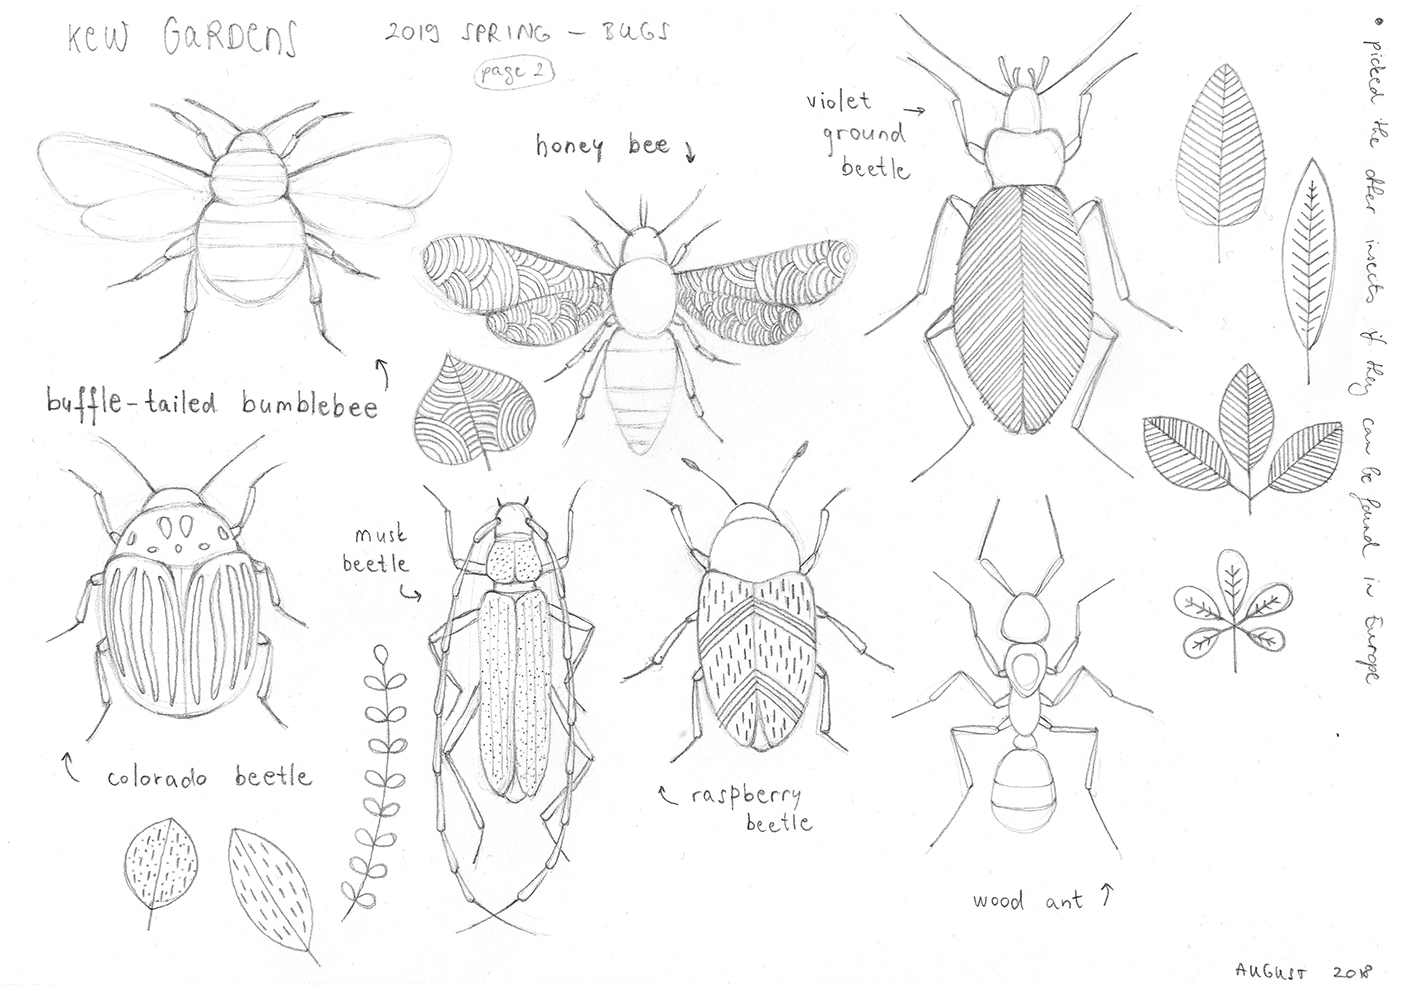 KEW GARDENS
2019 SPRING – BUGS
page 2
buffle-tailed bumblebee
honey bee
violet
ground
beetle
• picked the other insects if they can be found in Europe
colorado beetle
musk
beetle
raspberry
beetle
wood ant
AUGUST 2018